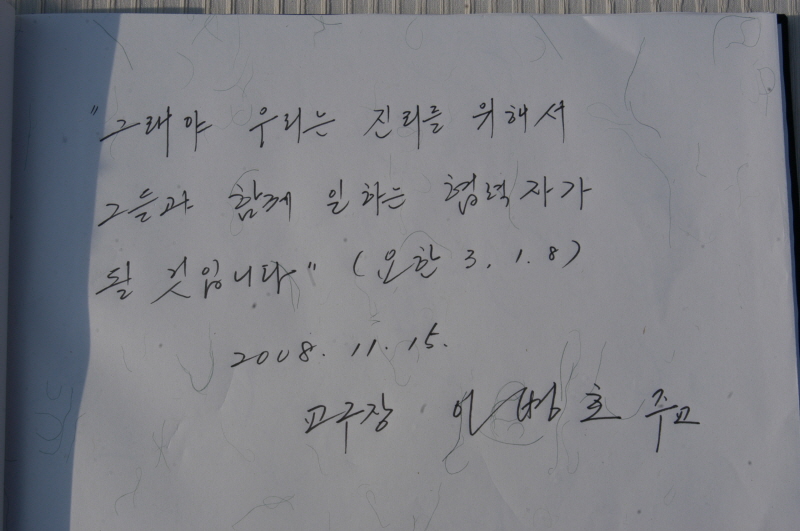 "그래야 우리는 진리를 위해서
그들과 함께 일하는 협력자가
될 것입니다" (요한 3. 1. 8)
2008. 11. 15.
교구장 이병호 주교